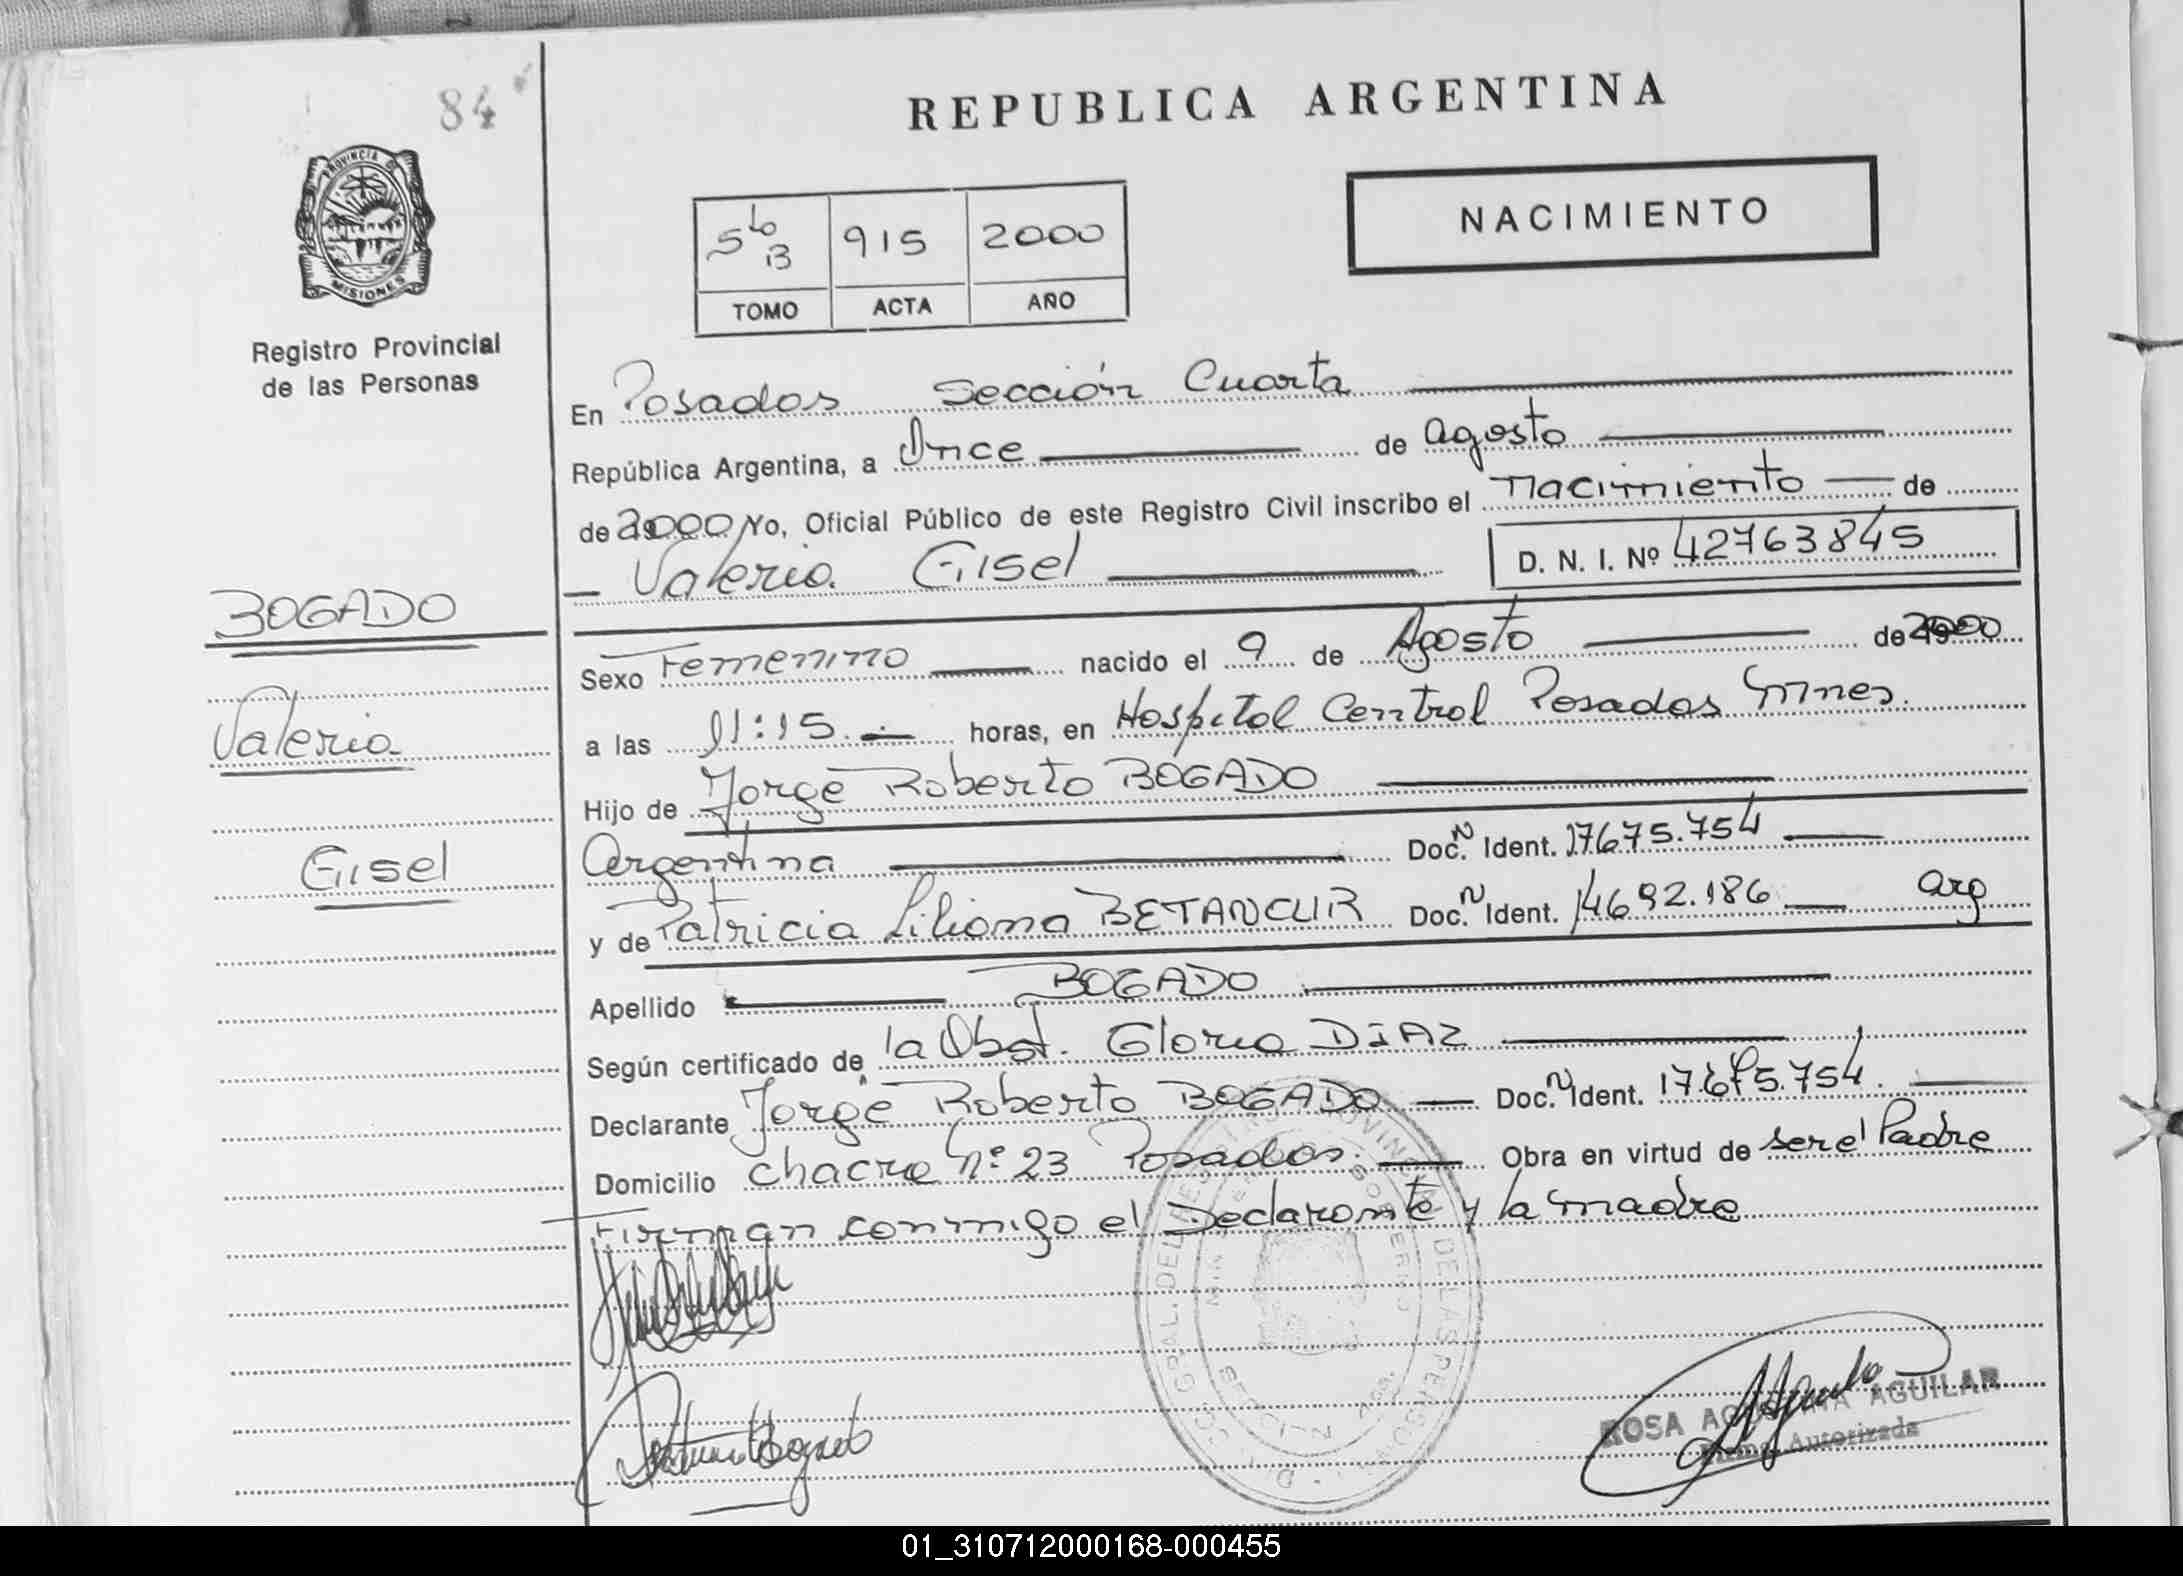 84
REPUBLICA ARGENTINA
PROVINCIA DE
MISIONES
5to B 915 2000
TOMO ACTA AÑO
NACIMIENTO
Registro Provincial
de las Personas
En Posadas Sección Cuarta
República Argentina, a Once de agosto
de 2000 Yo, Oficial Público de este Registro Civil inscribo el nacimiento de
Valeria Gisel D. N. I. Nº 42763845
BOGADO
Valeria
Gisel
Sexo Femenino nacido el 9 de Agosto de 2000
a las 11:15. horas, en Hospital Central Posadas Mnes.
Hijo de Jorge Roberto BOGADO
Argentina Doc. N Ident. 17675.754
y de Patricia Liliana BETANCUR Doc. N Ident. 14692.186 arg
Apellido BOGADO
Según certificado de la Obst. Gloria DIAZ
Declarante Jorge Roberto BOGADO Doc. N Ident. 17.675.754.
Domicilio chacra Nº 23 Posadas. Obra en virtud de ser el Padre
Firman conmigo el Declarante y la madre
ROSA AGUSTINA AGUILAR
Firma Autorizada
01_310712000168-000455